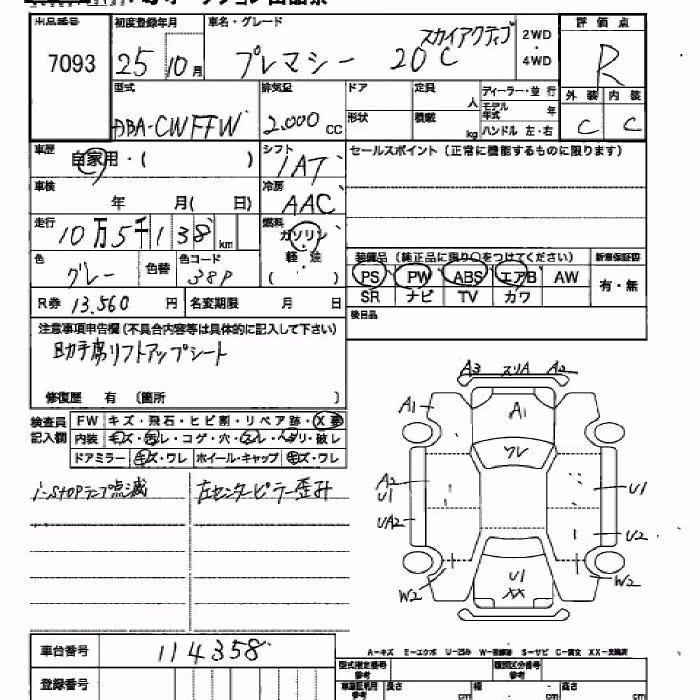 出品番号 初度登録年月 車名・グレード 評価点
7093 25 10月 プレマシー 20C スカイアクティブ 2WD・4WD R
型式 排気量 ドア 定員 人 ディーラー・並行 外装 内装
DBA-CWFFW 2.000cc 形状 積載 kg モデル年式 年 ハンドル 左・右 C C
車歴 自家用・( ) シフト 1AT セールスポイント(正常に機能するものに限ります)
車検 年 月( 日) 冷房 AAC
走行 10万5千138km 燃料 ガソリン・軽・油 ( )
色 グレー 色替 色コード 38P 装備品(純正品に限り○をつけてください) 新車保証書
PS PW ABS エアB AW 有・無
R券 13.560円 名変期限 月 日 SR ナビ TV カワ
注意事項申告欄(不具合内容等は具体的に記入して下さい) 後日品
助手席リフトアップシート
修復歴 有 〔箇所 〕
検査員記入欄 FW キズ・飛石・ヒビ割・リペア跡・X要
内装 キズ・汚レ・コゲ・穴・スレ・ヘタリ・破レ
ドアミラー キズ・ワレ ホイール・キャップ キズ・ワレ
i-STOPランプ点滅 左センターピラー歪み
A3 スリA A2
A1 A1
ワレ
A2 U1 U1
UA2 U2
W2 U1 XX W2
A-キズ E-エクボ U-凹み W-補修跡 S-サビ C-腐食 XX-交換済
車台番号 114358
型式指定番号 参考 類別区分番号 参考
登録番号 車庫証明用 参考 長さ cm 幅 cm 高さ cm